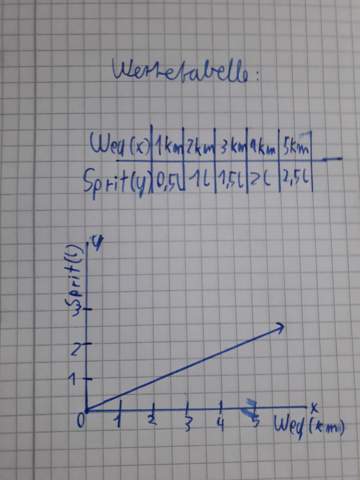 Wertetabelle:
Weg(x) 1km 2km 3km 4km 5km
Sprit(y) 0,5l 1l 1,5l 2l 2,5l
y
Sprit(l)
3
2
1
0 1 2 3 4 5
x
Weg(km)